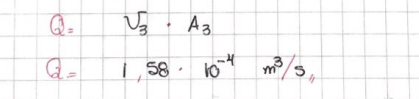 Q = V₃ · A₃
Q = 1,58 · 10⁻⁴ m³/s,,